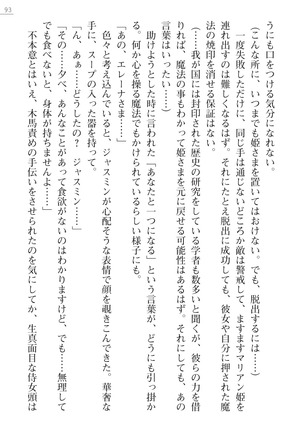 93
うにも口をつける気分になれない。
(こんな所に、いつまでも姫さまを置いてはおけない。でも、脱出するには……)
一度失敗しただけに、同じ手は通じないどころか敵は警戒して、ますますマリアン姫を
連れ出すのは難しくなるはず。それにたとえ脱出に成功しても、彼女や自分に押された魔
法の焼印を消せる保証はない。
(……我が国には封印された歴史の研究をしている学者も数多いと聞くから、彼らの力を借
りれば、魔法の事もわかって姫さまを元に戻せる可能性はあるはず。それにしても、あの
言葉はいったい……)
助けようとした時に言われた「あなたと一つになる」という言葉が、どうにも引っ掛か
る。何か心を操る魔法でもかけられているらしい様子にも。
「あの、エレーナさま……」
色々と考え込んでいると、ジャスミンが心配そうな表情で顔を覗きこんできた。華奢な
手に、スープの入った器を持って。
「ん、あぁ……どうしたの? ジャスミン……」
「その……夕べ、あんなことがあって食欲がないのはわかりますけど、でも……無理して
でも食べないと、身体が持ちませんよ……」
不本意とはいえ、木馬責めの手伝いをさせられたのを気にしてか、生真面目な侍女頭は